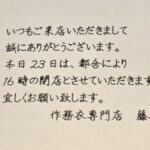 いつもご来店いただきまして
誠にありがとうございます。
本日23日は、都合により
16時の閉店とさせていただきます
宜しくお願い致します。
作務衣専門店 藤